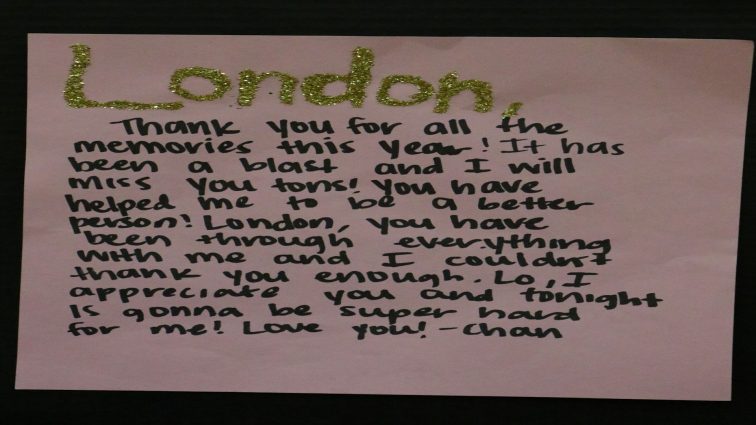 London,
Thank you for all the
memories this year! It has
been a blast and I will
miss you tons! you have
helped me to be a better
person! London, you have
been through everything
with me and I couldn't
thank you enough. Lo, I
appreciate you and tonight
is gonna be super hard
for me! Love you! -Chan